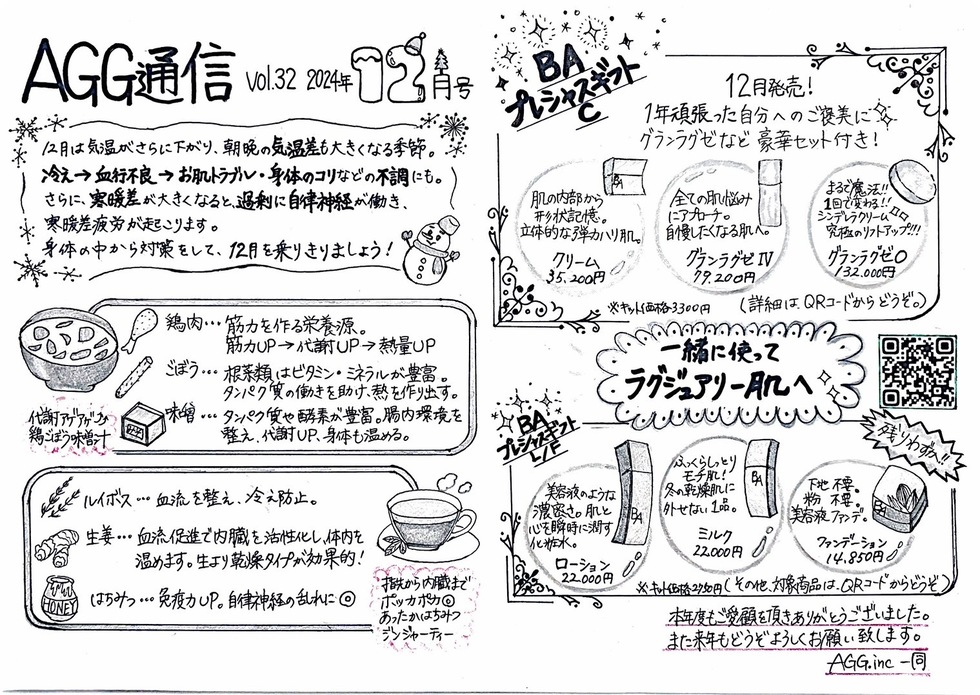 AGG通信 Vol.32 2024年12月号
12月は気温がさらに下がり、朝晩の気温差も大きくなる季節。
冷え→血行不良→お肌トラブル・身体のコリなどの不調にも。
さらに、寒暖差が大きくなると、過剰に自律神経が働き、
寒暖差疲労が起こります。
身体の中から対策をして、12月を乗りきりましょう！
鶏肉…筋力を作る栄養源。
筋力UP→代謝UP→熱量UP
ごぼう…根菜類はビタミン・ミネラルが豊富。
タンパク質の働きを助け、熱を作り出す。
味噌…タンパク質や酵素が豊富。腸内環境を
整え、代謝UP、身体も温める。
代謝アゲアゲ
鶏ごぼう味噌汁
ルイボス…血流を整え、冷え防止。
生姜…血流促進で内臓を活性化し、体内を
温めます。生より乾燥タイプが効果的！
はちみつ…免疫力UP。自律神経の乱れに◎
HONEY
指先から内臓まで
ポッカポカ◎
あったかはちみつ
ジンジャーティー
BA
プレシャスギフト
C
12月発売！
1年頑張った自分へのご褒美に
グランラグゼなど豪華セット付き！
BA
肌の内部から
形状記憶。
立体的な弾力ハリ肌。
クリーム
35,200円
全ての肌悩み
にアプローチ。
自慢したくなる肌へ。
グランラグゼⅣ
79,200円
まるで魔法!!
1回で変わる!!
シンデレラクリーム
究極のリフトアップ!!!
グランラグゼO
132,000円
※キット価格3300円
(詳細は、QRコードからどうぞ。)
一緒に使って
ラグジュアリー肌へ
BA
プレシャスギフト
L/F
残りわずか!!
美容液のような
濃密さ。肌と
心を瞬時に潤す
化粧水。
ローション
22,000円
BA
ふっくらしっとり
モチ肌！
冬の乾燥肌に
外せない1品。
ミルク
22,000円
BA
下地不要。
粉不要。
美容液ファンデ。
ファンデーション
14,850円
BA
※キット価格2750円(その他、対象商品は、QRコードからどうぞ)
本年度もご愛顧を頂きありがとうございました。
また来年もどうぞよろしくお願い致します。
AGG.inc 一同